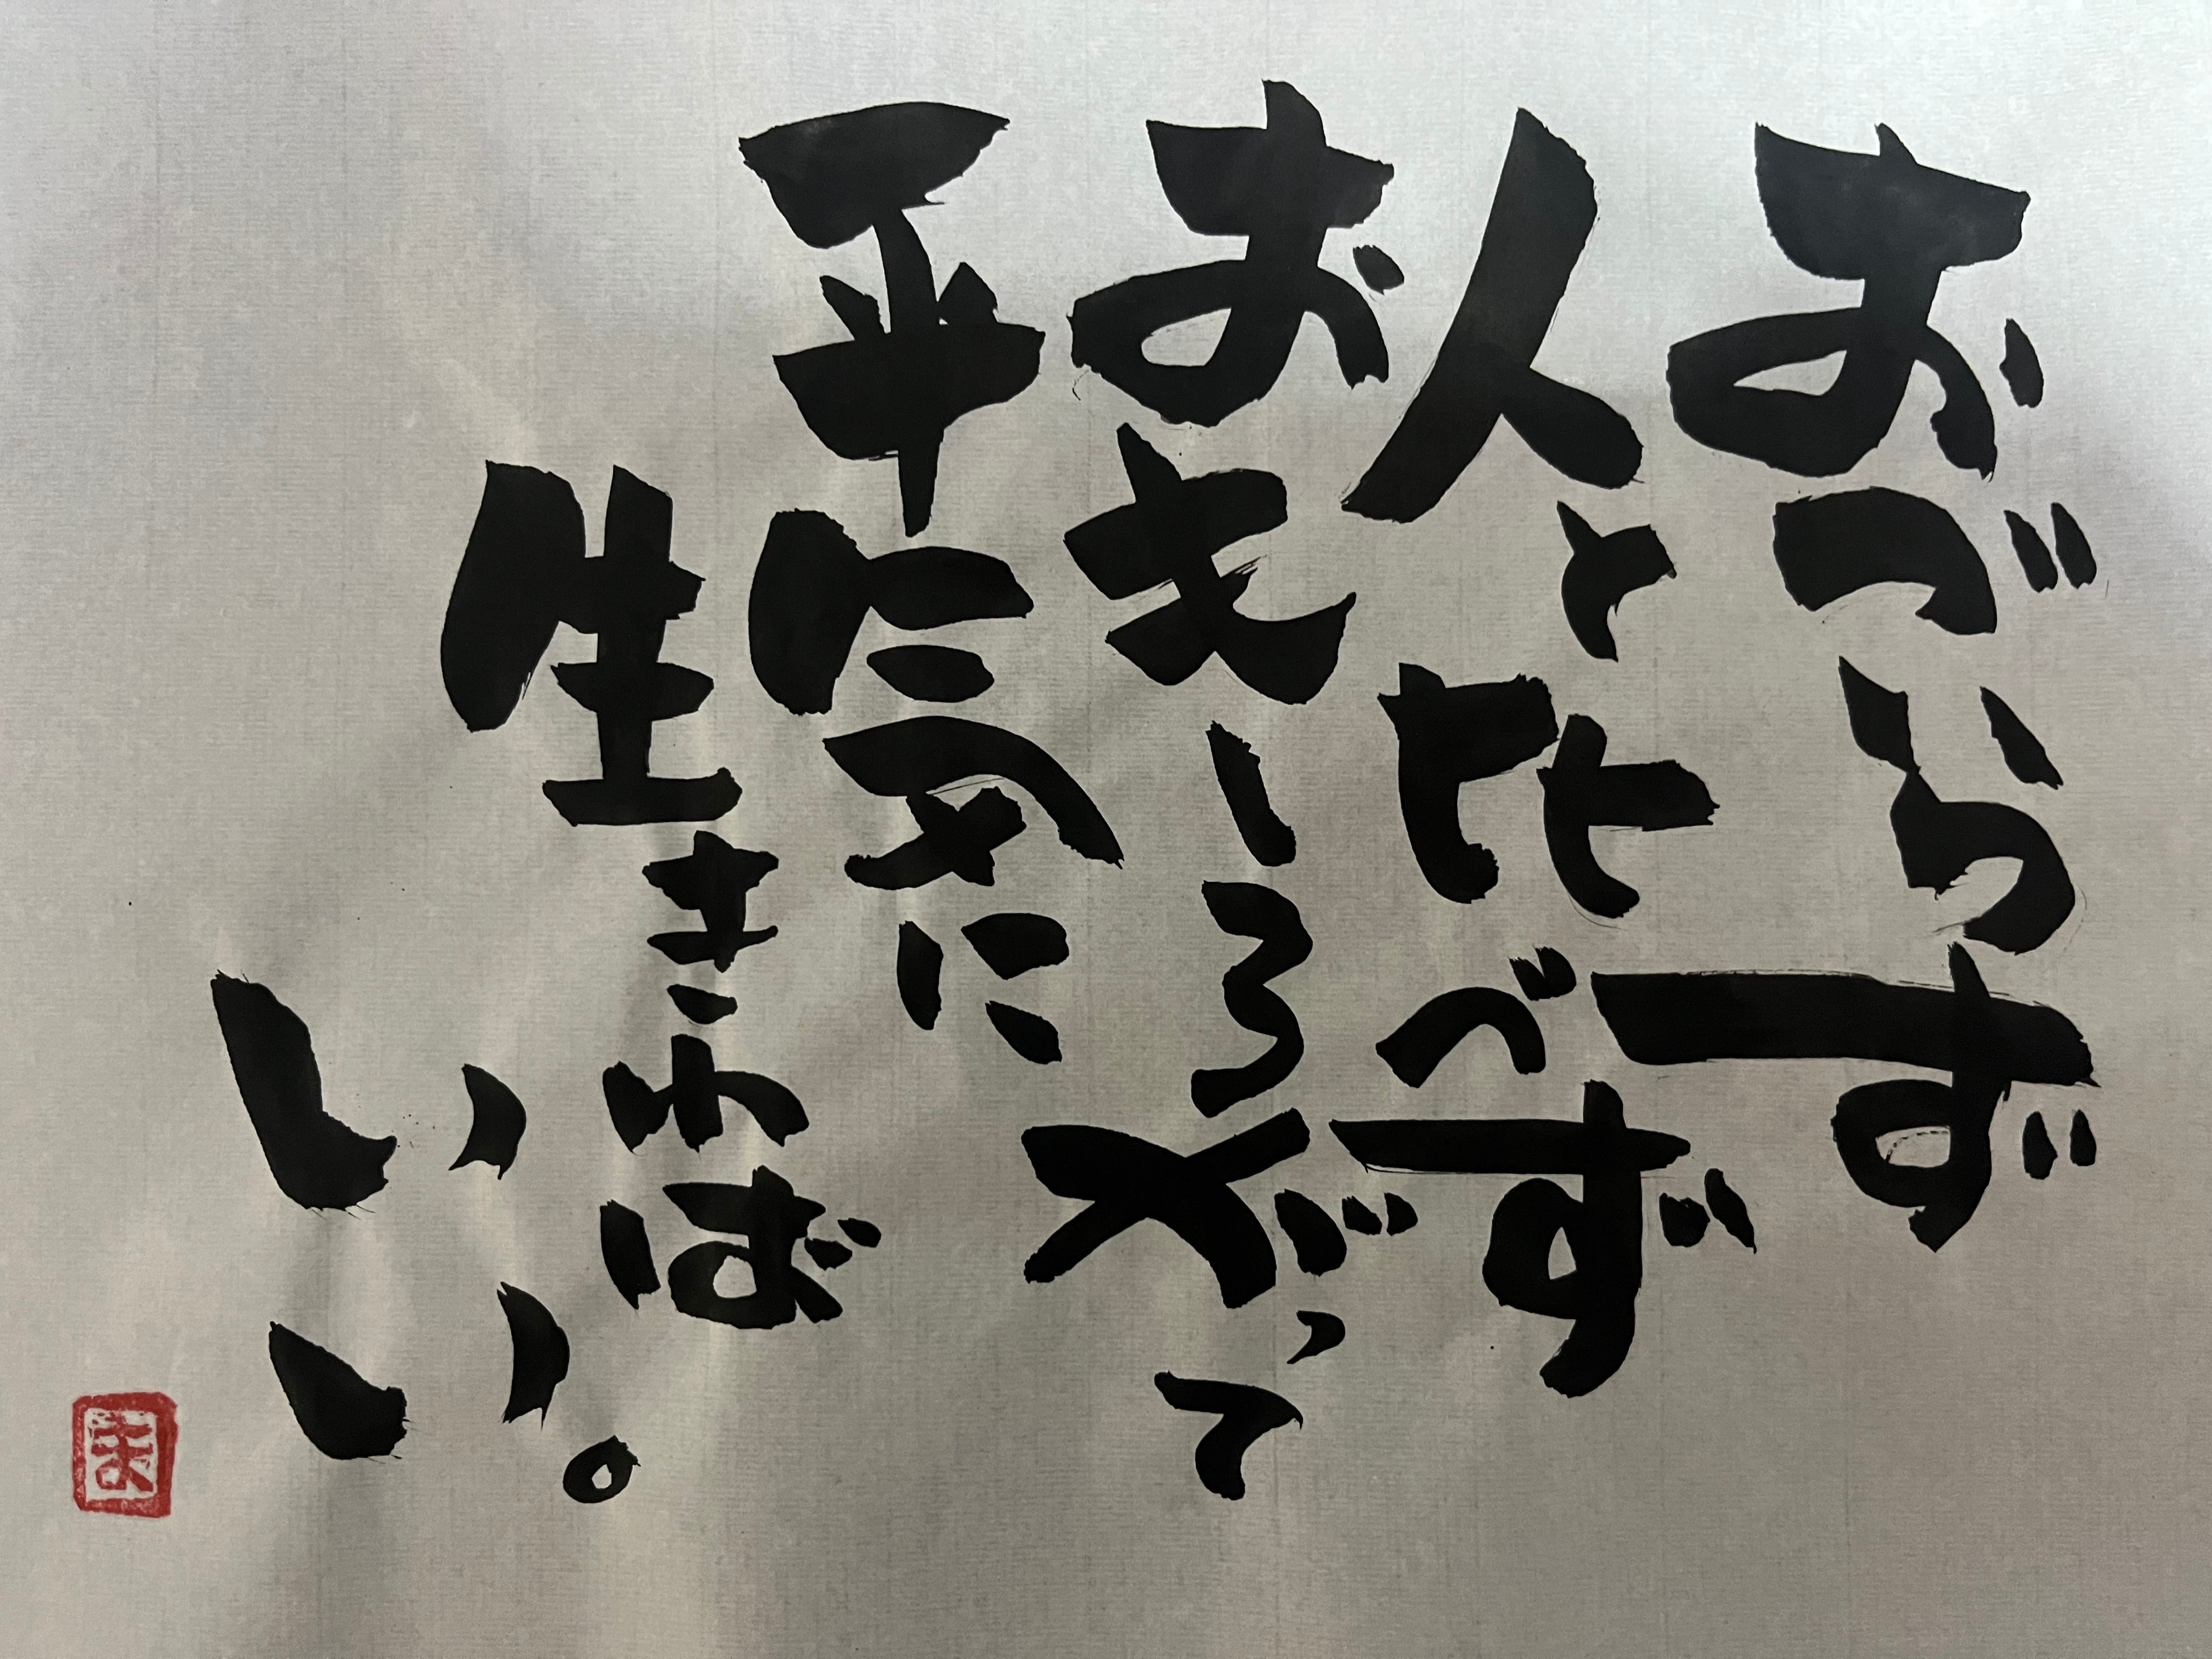 おごらず
人と比べず
おもしろがって
平気に
生きれば
いい。
ま